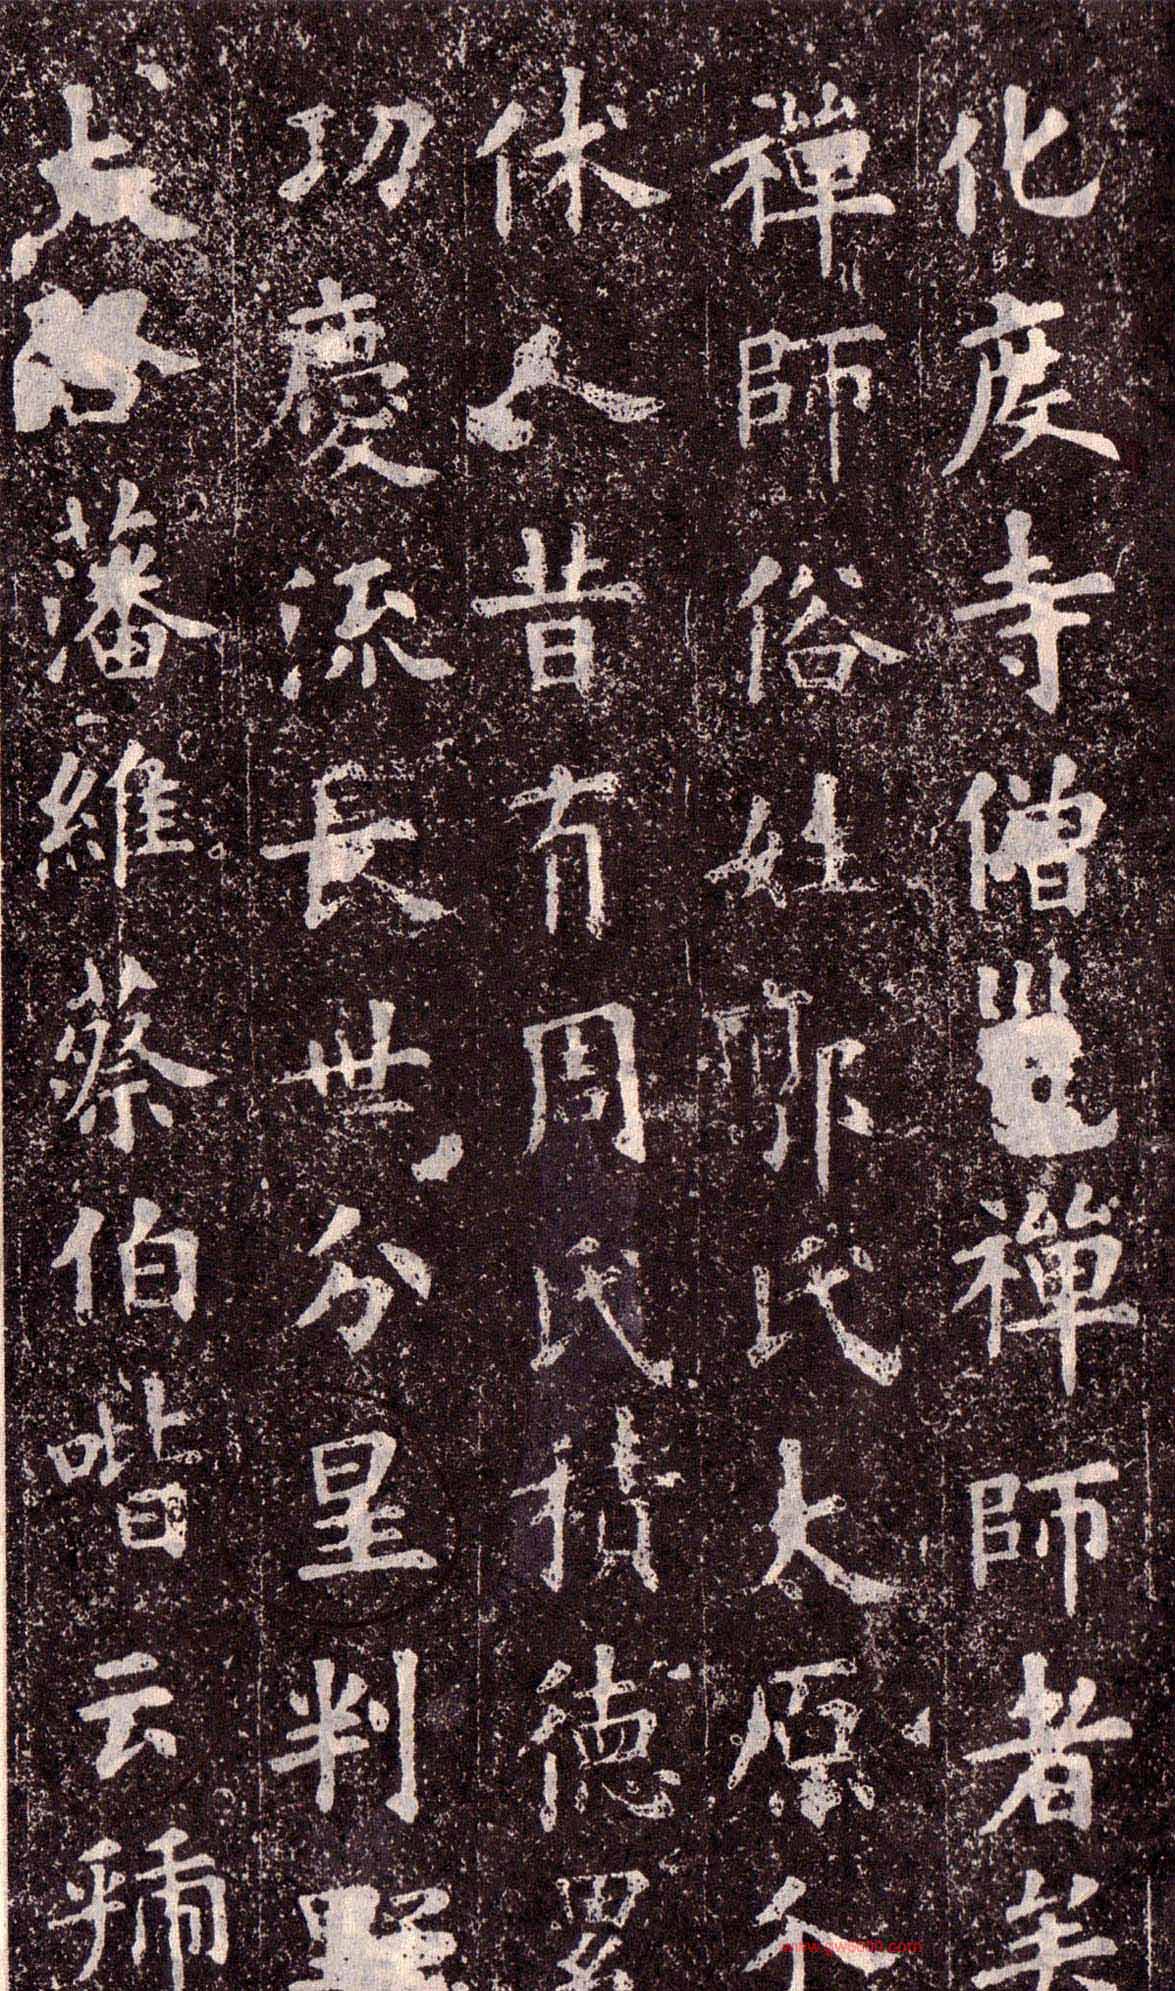 化度寺僧邕禪師者矣
禪師俗姓郭氏太原介
休人昔有周氏積德累
功慶流長世分星判野
大啓藩維蔡伯喈云虢